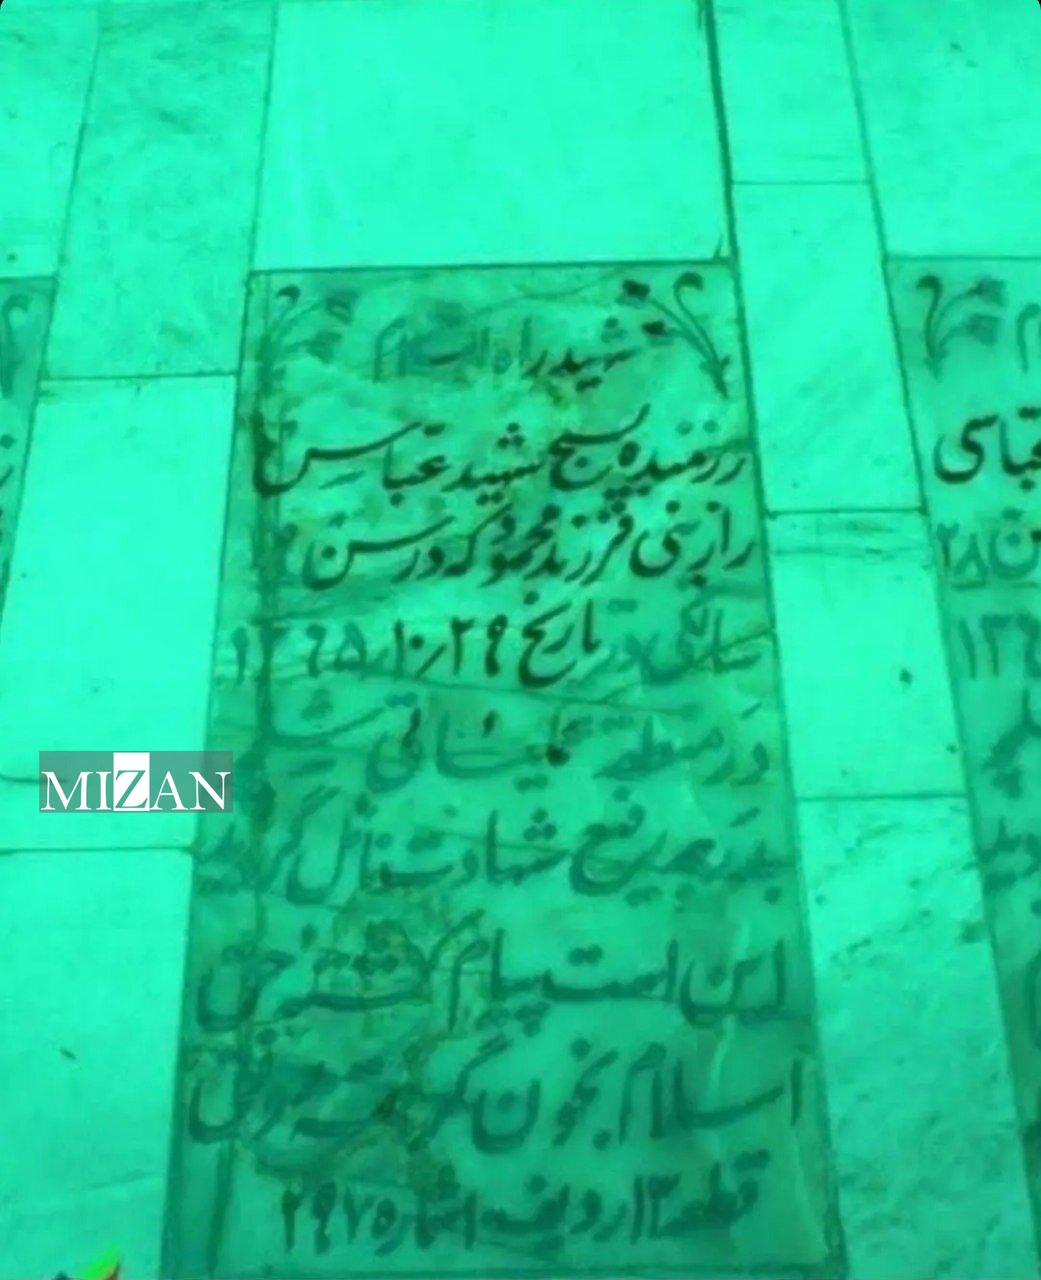 شهید راه اسلام
رزمنده بسیج شهید عباس
رازینی فرزند محمود که در سن
سالگی در تاریخ ۱۰/۲۹/ ۱۳۶۵
در منطقه
بدرجه رفیع شهادت نائل گردید
این است پیام حق
اسلام بخون گرفته رونق
قطعه ردیف شماره ۲۹۷
عباسی
ن ۲۸
۱۳۶
MIZAN